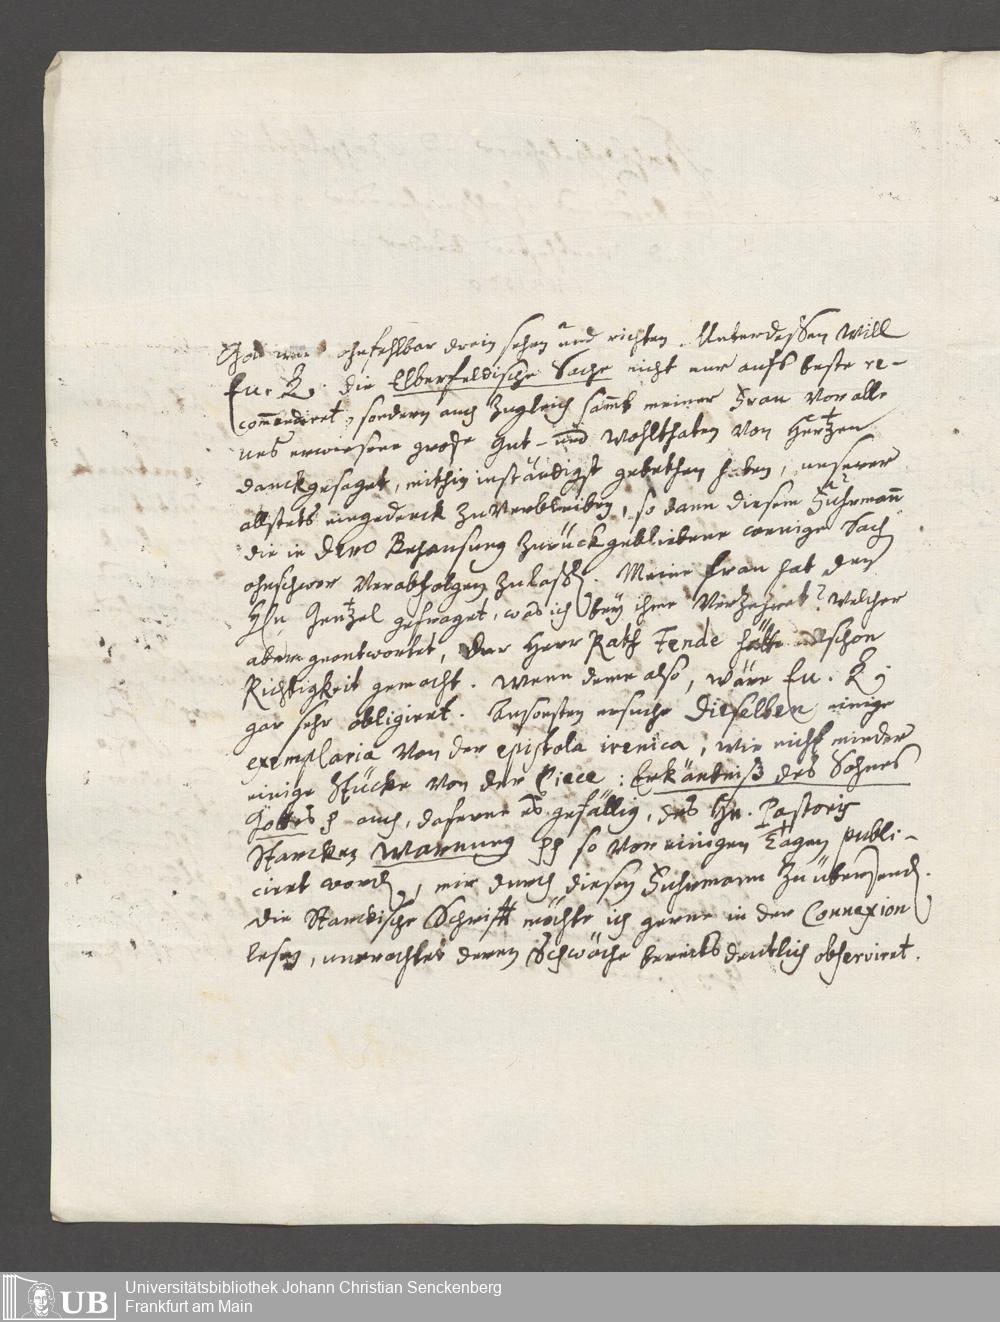 Gott wird ohnfehlbar drein sehen und richten. Unterdessen will
Eu. die Elberfeldische Sache nicht nur aufs beste re-
com̄endiret, sondern auch zugleich sam̄t meiner Frau vor alle
uns erwiesene große Gut- und Wohlthaten von Hertzen
danckgesaget, mithin inständigst gebethen haben, unserer
allstets eingedenck zu verbleiben, so dann diesem Fuhrman̄
die in Dero Behausung zurückgebliebene wenige Sach
ohnschwer verabfolgen zu laßen. Meine Frau hat den
Hn. Hentzel gefraget, was ich bey ihme verzehret? Welcher
aber geantwortet, der Herr Rath Fende hätte schon
Richtigkeit gemacht. Wenn deme also, wäre Eu.
gar sehr obligiret. Ansonsten ersuche Dieselben einige
exemplaria von der epistola irenica, wie nicht minder
einige Stücke von der Piece: Erkäntniß des Sohnes
Gottes p auch, daferne es gefällig, des Hn. Pastoris
Starcken Warnung pp so vor einigen Tagen publi-
ciret worden, mir durch diesen Fuhrmann zu übersenden.
Die Starckische Schrifft möchte ich gerne in der Connexion
lesen, unerachtet deren Schwäche bereits deutlich observiret.
Universitätsbibliothek Johann Christian Senckenberg
Frankfurt am Main
UB